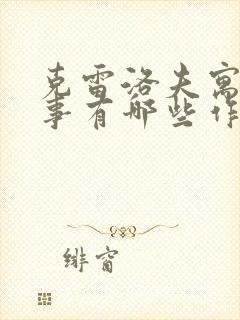 克雷洛夫寓
事有哪些作
绯窗